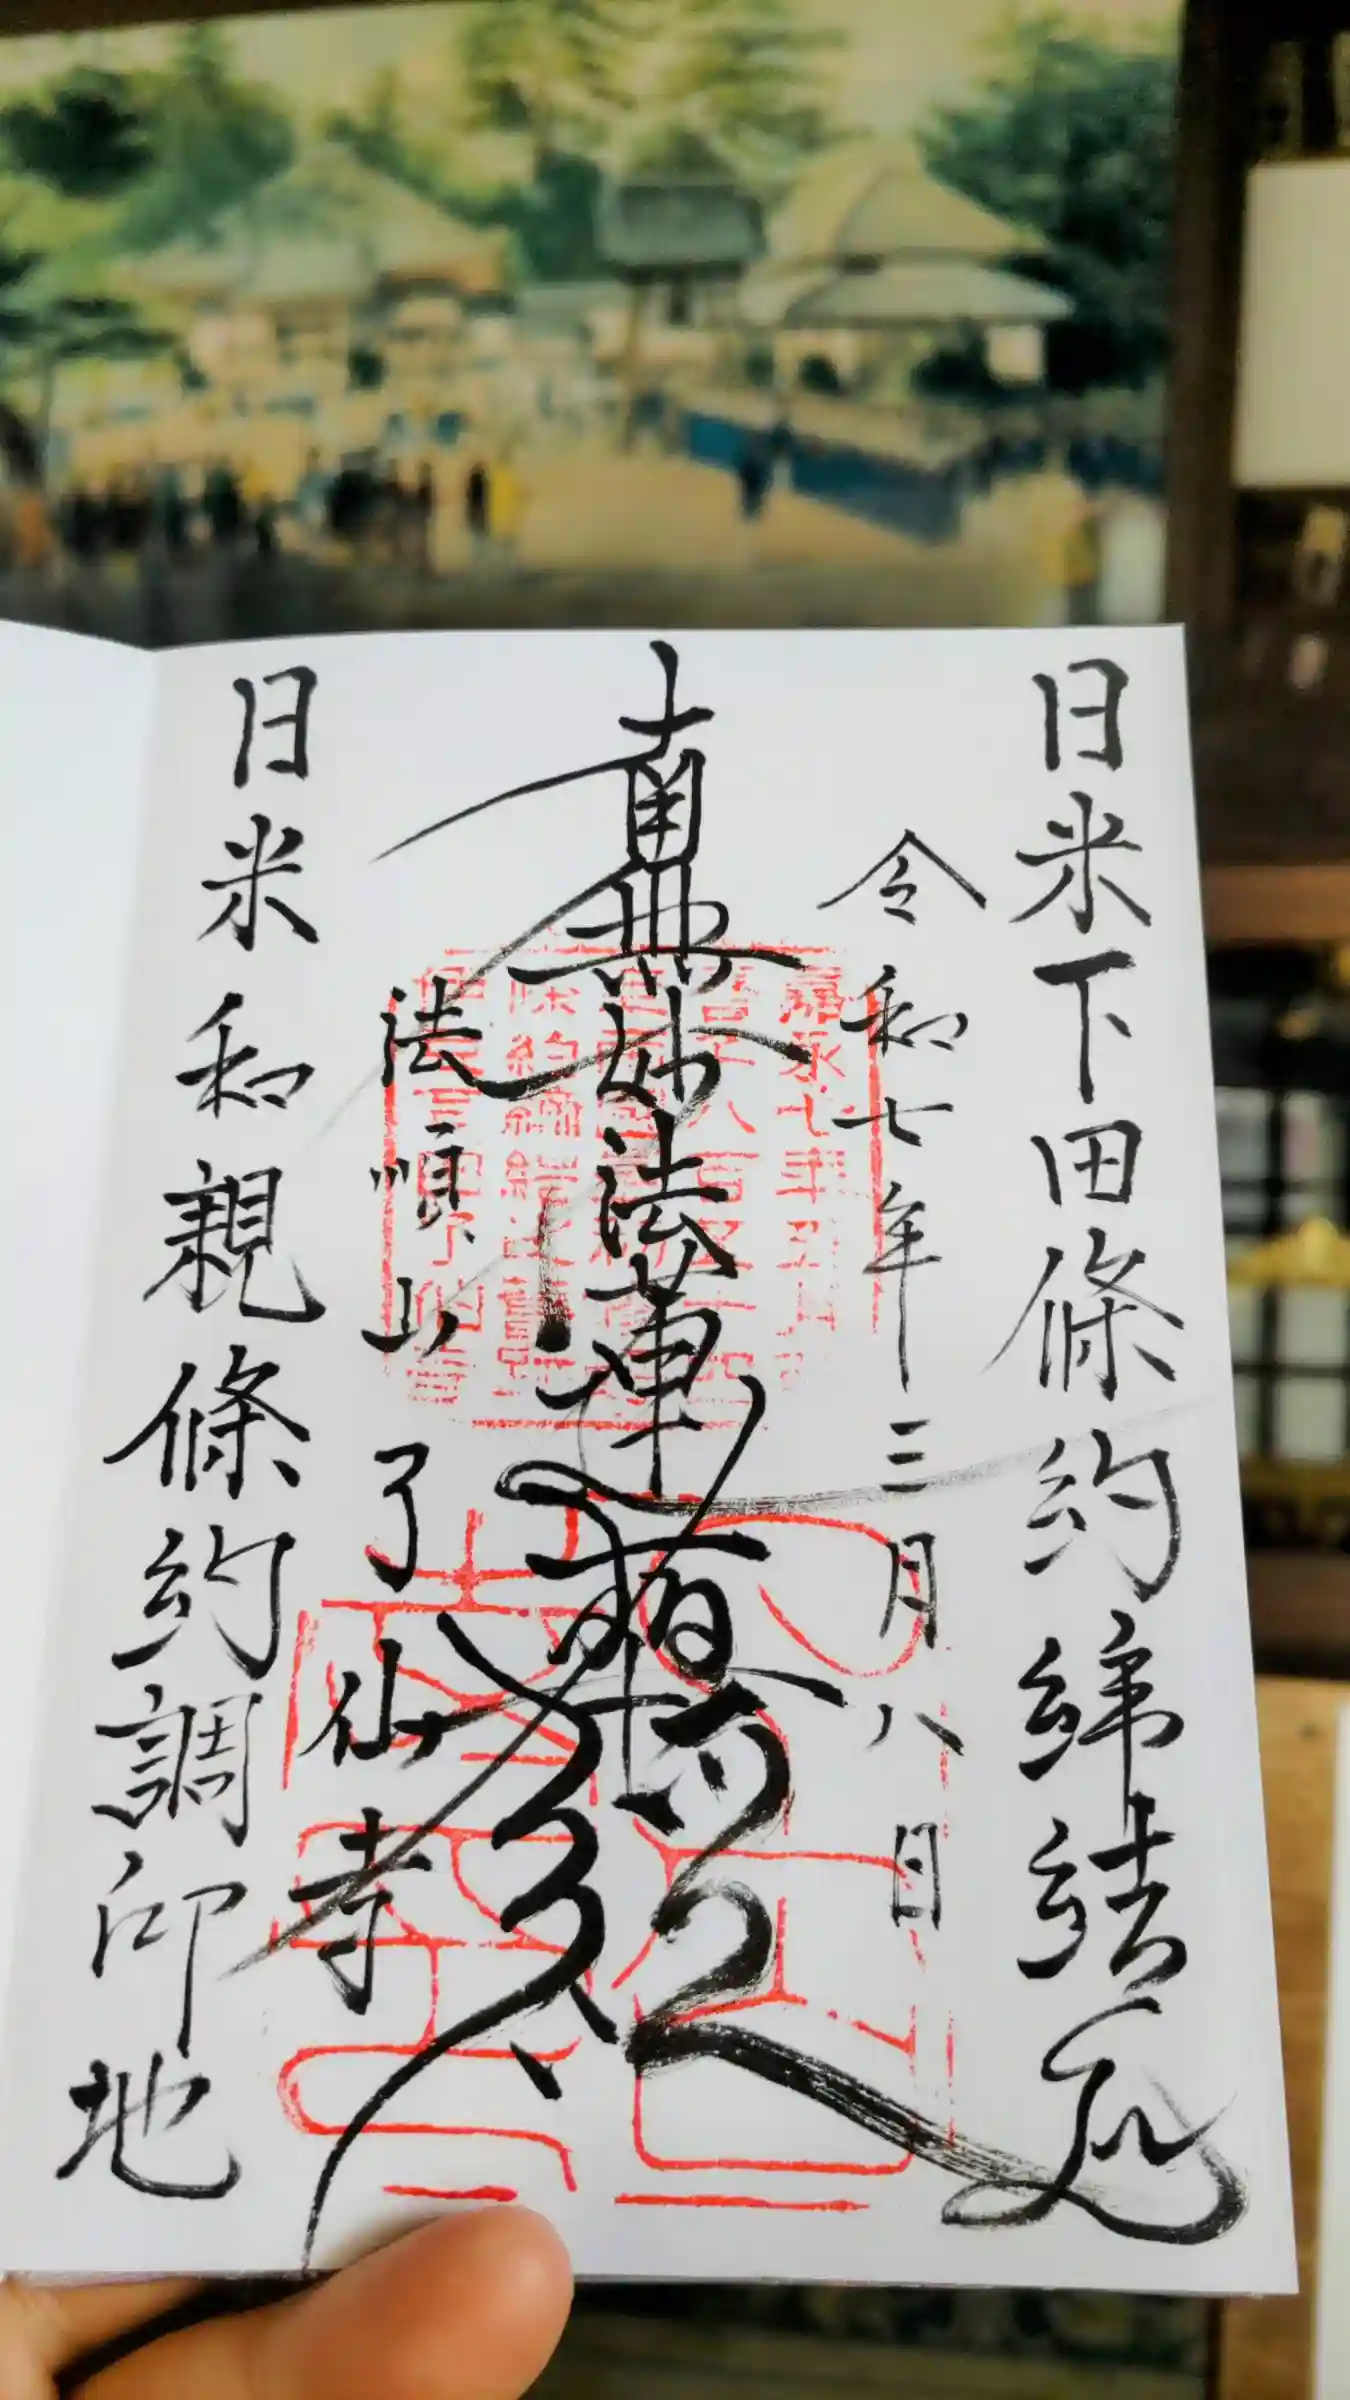 日米下田條約締結処
令和七年三月八日
南無妙法蓮華経
法順山了仙寺
日米和親條約調印地